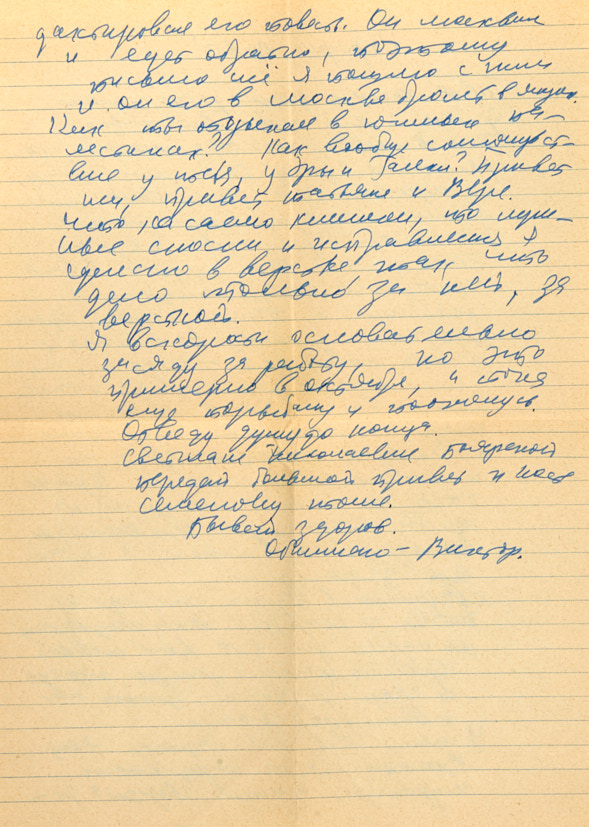 дактировал его повесть. Он москвич
и едет обратно, поэтому
письмо моё я пошлю с ним
и он его в Москве бросит в ящик.
Как ты отдыхал в южных па-
лестинах? Как вообще самочувст-
вие у тебя, у Иры и Галки? Привет
им, привет Татьяне и Вере.
Что касаемо книжки, то нуж-
ные сноски и исправления я
сделаю в верстке так, что
дело только за ней, за
версткой.
Я вскорости основательно
засяду за работу, но это
примерно в октябре, а пока
еще порыбачу и поохочусь.
Отведу душу до конца.
Светлане Николаевне Боярской
передай большой привет и
Семенову тоже.
Бывай здоров.
Обнимаю – Виктор.